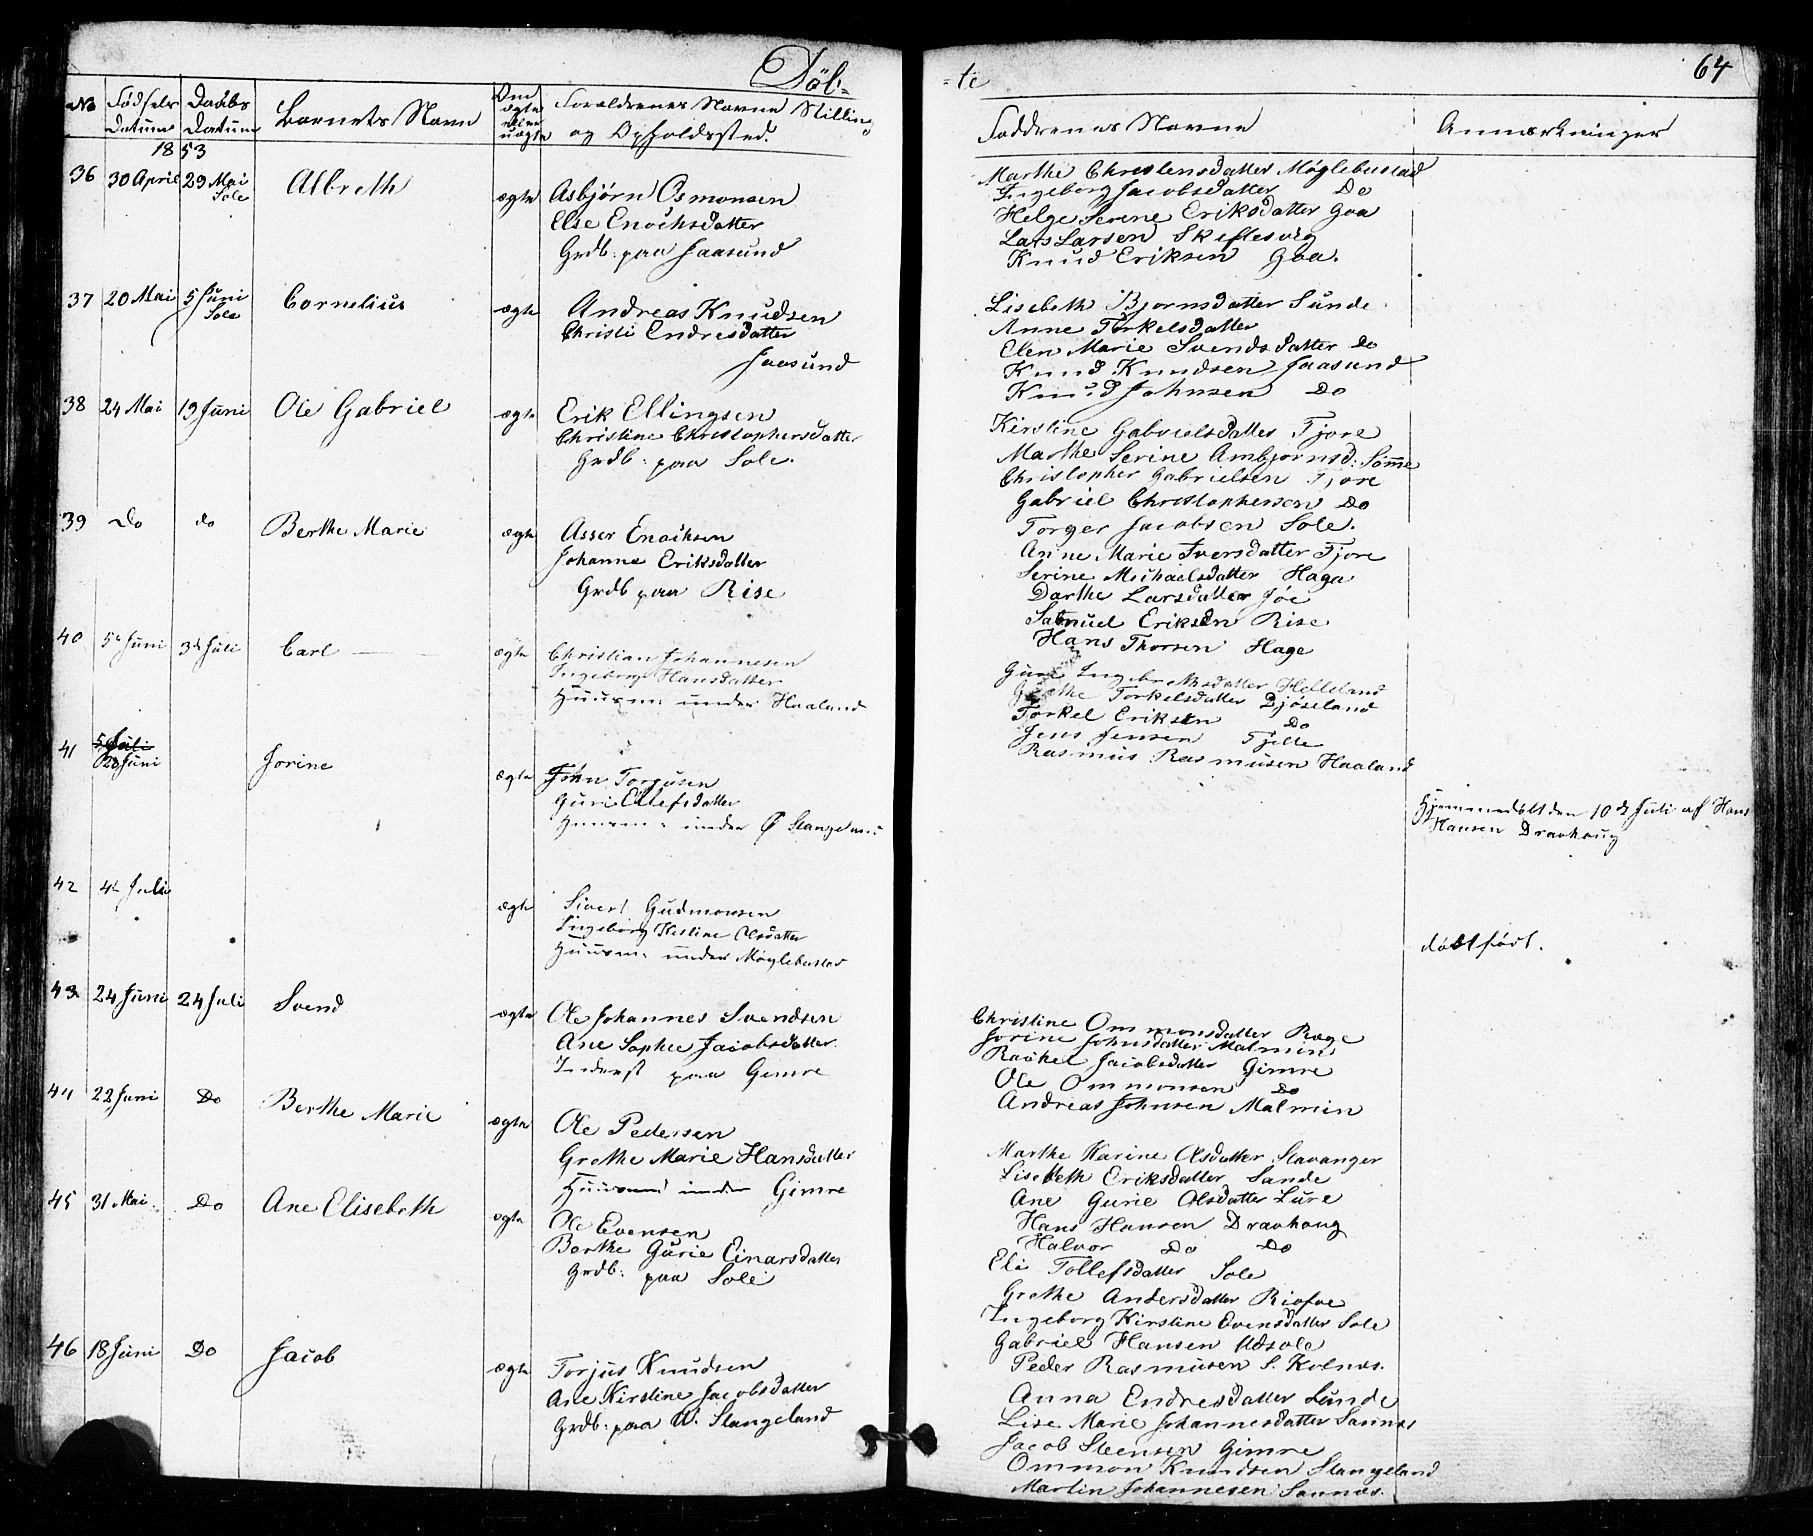 Döb-
-te
64
No
Fødsels Datum
Daabs Datum
Barnets Navn
Om ægte eller uægte
Forældrenes Navne Stilling og Opholdssted.
Faddrenes Navne
Anmærkninger
1853
36 30 April 29 Mai Sole Albreth ægte
Asbjørn Osmonsen
Else Enochsdatter
Grdb: paa Jaasund
Marthe Christensdatter Møglebustad
Ingeborg Jacobsdatter Do
Helge Serene Eriksdatter Goa
Lars Larsen Skiftesvig
Knud Eriksen Goa.
37 20 Mai 5 Juni Sole Cornelius ægte
Andreas Knudsen
Christi Endresdatter
Jaasund
Lisebeth Bjornsdatter Sunde
Anne Torkelsdatter
Elen Marie Svendsdatter Do
Knud Knudsen Jaasund
Knud Johnsen Do
38 24 Mai 19 Juni Ole Gabriel ægte
Erik Ellingsen
Christine Christophersdatter
Grdb: paa Sole.
Kirstine Gabrielsdatter Tjore
Marthe Serine Ambjornsd: Sømme
Christopher Gabrielsen Tjore
Gabriel Christophersen Do
Torger Jacobsen Sole.
39 Do do Berthe Marie ægte
Asser Enochsen
Johanne Eriksdatter
Grdb paa Rise
Anne Marie Iversdatter Tjore
Serine Michaelsdatter Haga
Darthe Larsdatter Joe
Samuel Eriksen Rise
Hans Thorsen Hage
40 5te Juni 3de Juli Carl ægte
Christian Johannesen
Ingeborg Hansdatter
Huusm: under Haaland
Guri Ingebrethsdatter Helleland
Grethe Torkelsdatter Djøseland
Torkel Eriksen Do
Jens Jensen Tjelle
Rasmus Rasmusen Haaland
41 5 Juli 28 Juni Jorine ægte
John Torgusen
Guri Ellefsdatter
Huusm: under Ø Stangeland
Hjemmedøbt den 10de Juli af Hans
Hansen Dravhaug
42 4de Juli ægte
Sivert Gudmonsen
Ingeborg Kistine Olsdatter
Huusm: under Møglebustad
dødtfødt.
43 24 Juni 24 Juli Svend ægte
Ole Johannes Svendsen
Ane Sophie Jacobsdatter
Inderst paa Gimre
Christine Ommonsdatter Ræge
Jorine Johnsdatter Malmin
Rachel Jacobsdatter Gimre
Ole Ommonsen Do
Andreas Johnsen Malmin
44 22 Juni Do Berthe Marie ægte
Ole Pedersen
Grethe Marie Hansdatter
Huusmd under Gimre
Marthe Karine Olsdatter Stavanger
Lisebeth Eriksdatter Sande
Ane Gurie Olsdatter Lure
Hans Hansen Dravhaug
Halvor Do Do
45 31 Mai Do Ane Elisebeth ægte
Ole Evensen
Berthe Gurie Einarsdatter
Grdb: paa Sole
Eli Tollefsdatter Sole
Grethe Andersdatter Risfoe
Ingeborg Kirstine Evensdatter Sole
Gabriel Hansen Udsole
Peder Rasmusen S. Kolnæs.
46 18 Juni Do Jacob ægte
Torjus Knudsen
Ane Kirstine Jacobsdatter
Grdb: paa W. Stangeland
Anna Endresdatter Sunde
Lise Marie Johannesdatter Sannæs
Jacob Steensen Gimre
Ommon Knudsen Stangeland
Martin Johannesen Sannæs.